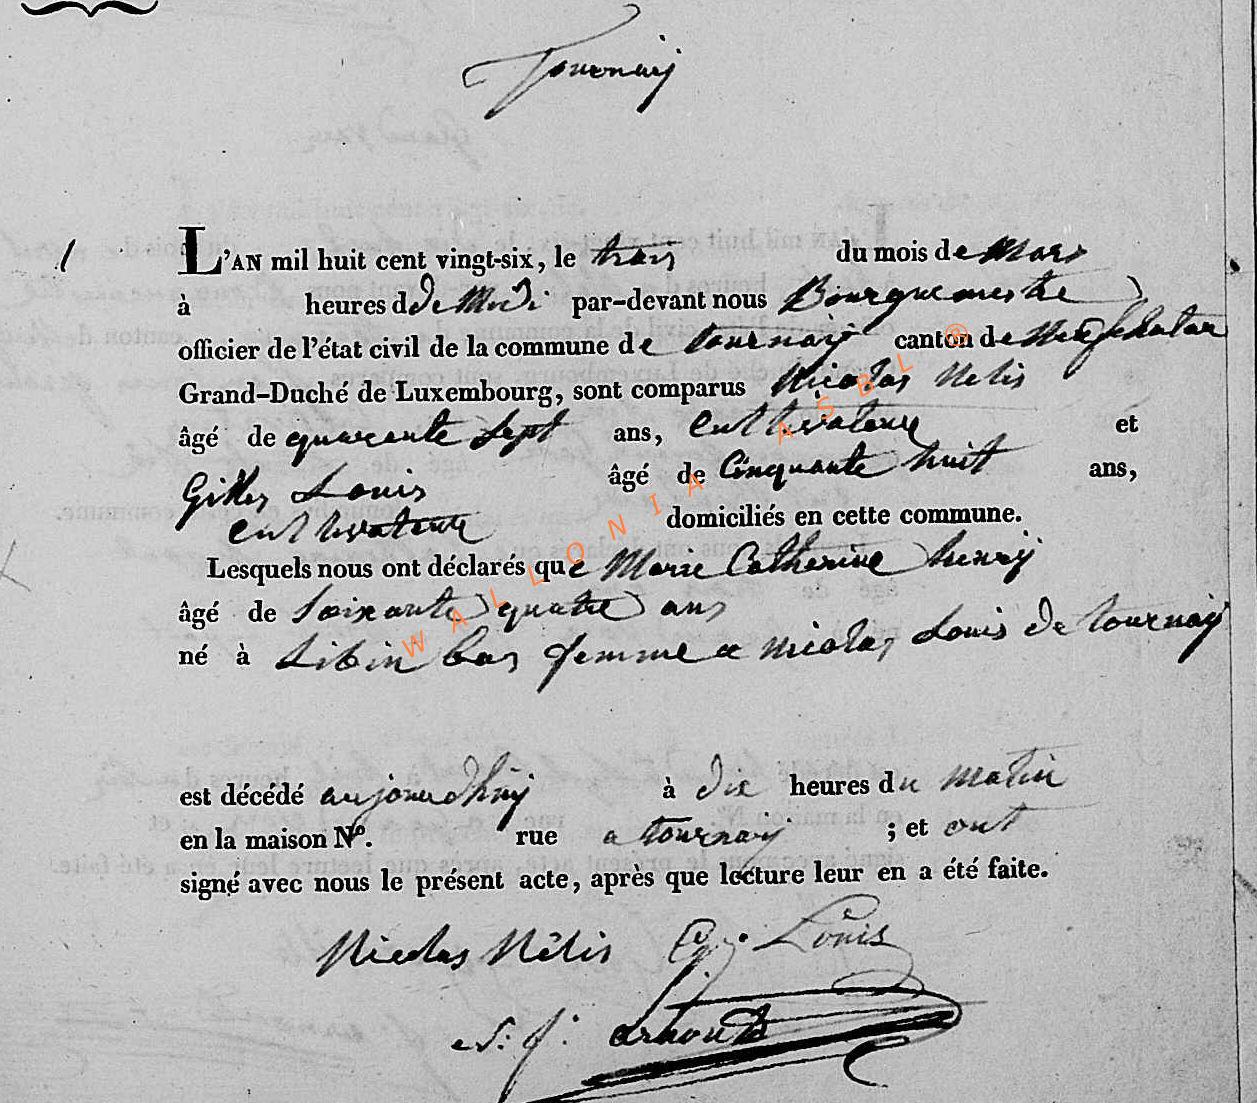 Tournay
1
L'AN mil huit cent vingt-six, le trois du mois de Mars
à heures d de Midi par-devant nous Bourguemestre
officier de l'état civil de la commune de tournay canton de Neufchatau
Grand-Duché de Luxembourg, sont comparus Nicolas Nelis
âgé de quarente Sept ans, Cultivateur et
Gilles Louis âgé de Cinquante huit ans,
Cultivateur domiciliés en cette commune.
Lesquels nous ont déclarés que Marie Catherine henry
âgé de Soixante quatre ans
né à Libin bas femme a nicolas Louis de tournay
est décédé aujourdhuy à dix heures du matin
en la maison Nº. rue a tournay ; et ont
signé avec nous le présent acte, après que lecture leur en a été faite.
Nicolas Nélis Eg. Louis
arnould
WALLONIA ASBL ®